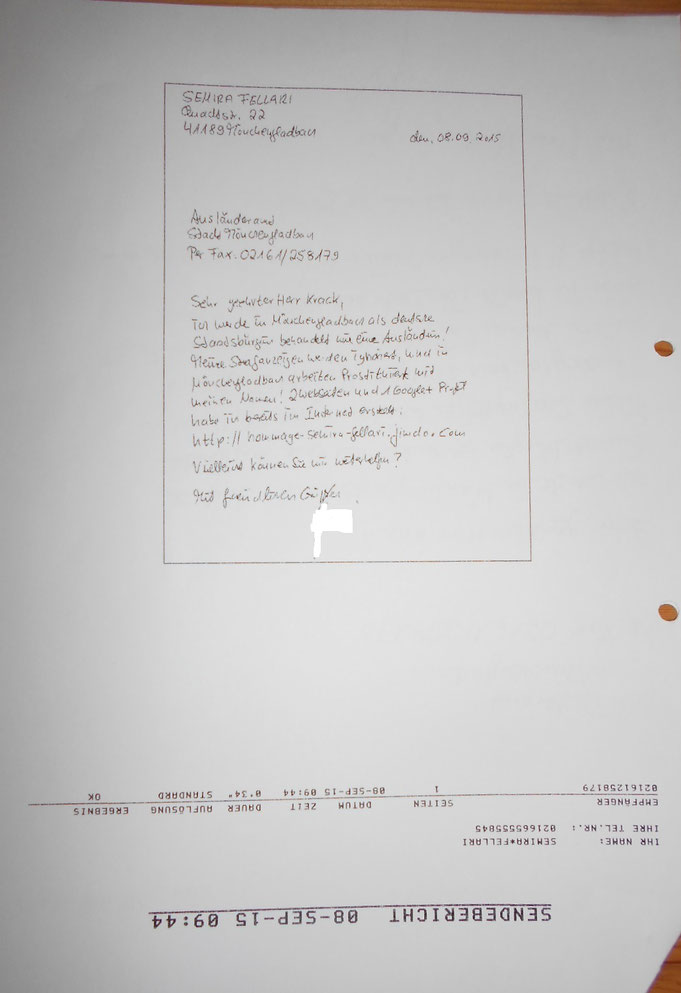 SEMIRA FELLARI
Quadtstr. 22
41189 Mönchengladbach
den, 08.09.2015
Ausländeramt
Stadt Mönchengladbach
Per Fax. 02161/258179
Sehr geehrter Herr Krack,
ich werde in Mönchengladbach als deutsche
Staatsbürgerin behandelt wie eine Ausländerin!
Meine Strafanzeigen werden ignoriert, und in
Mönchengladbach arbeiten Prostituierte mit
meinen Namen! 2 Webseiten und 1 Google+ Profil
habe ich bereits im Internet erstellt:
http://hommage-semira-fellari.jimdo.com
Vielleicht können Sie mir weiterhelfen?
Mit freundlichen Grüßen
SENDEBERICHT 08-SEP-15 09:44
IHR NAME: SEMIRA*FELLARI
IHRE TEL.NR.: 02166555845
EMPFÄNGER SEITEN DATUM ZEIT DAUER AUFLÖSUNG ERGEBNIS
02161258179 1 08-SEP-15 09:44 0'34" STANDARD OK